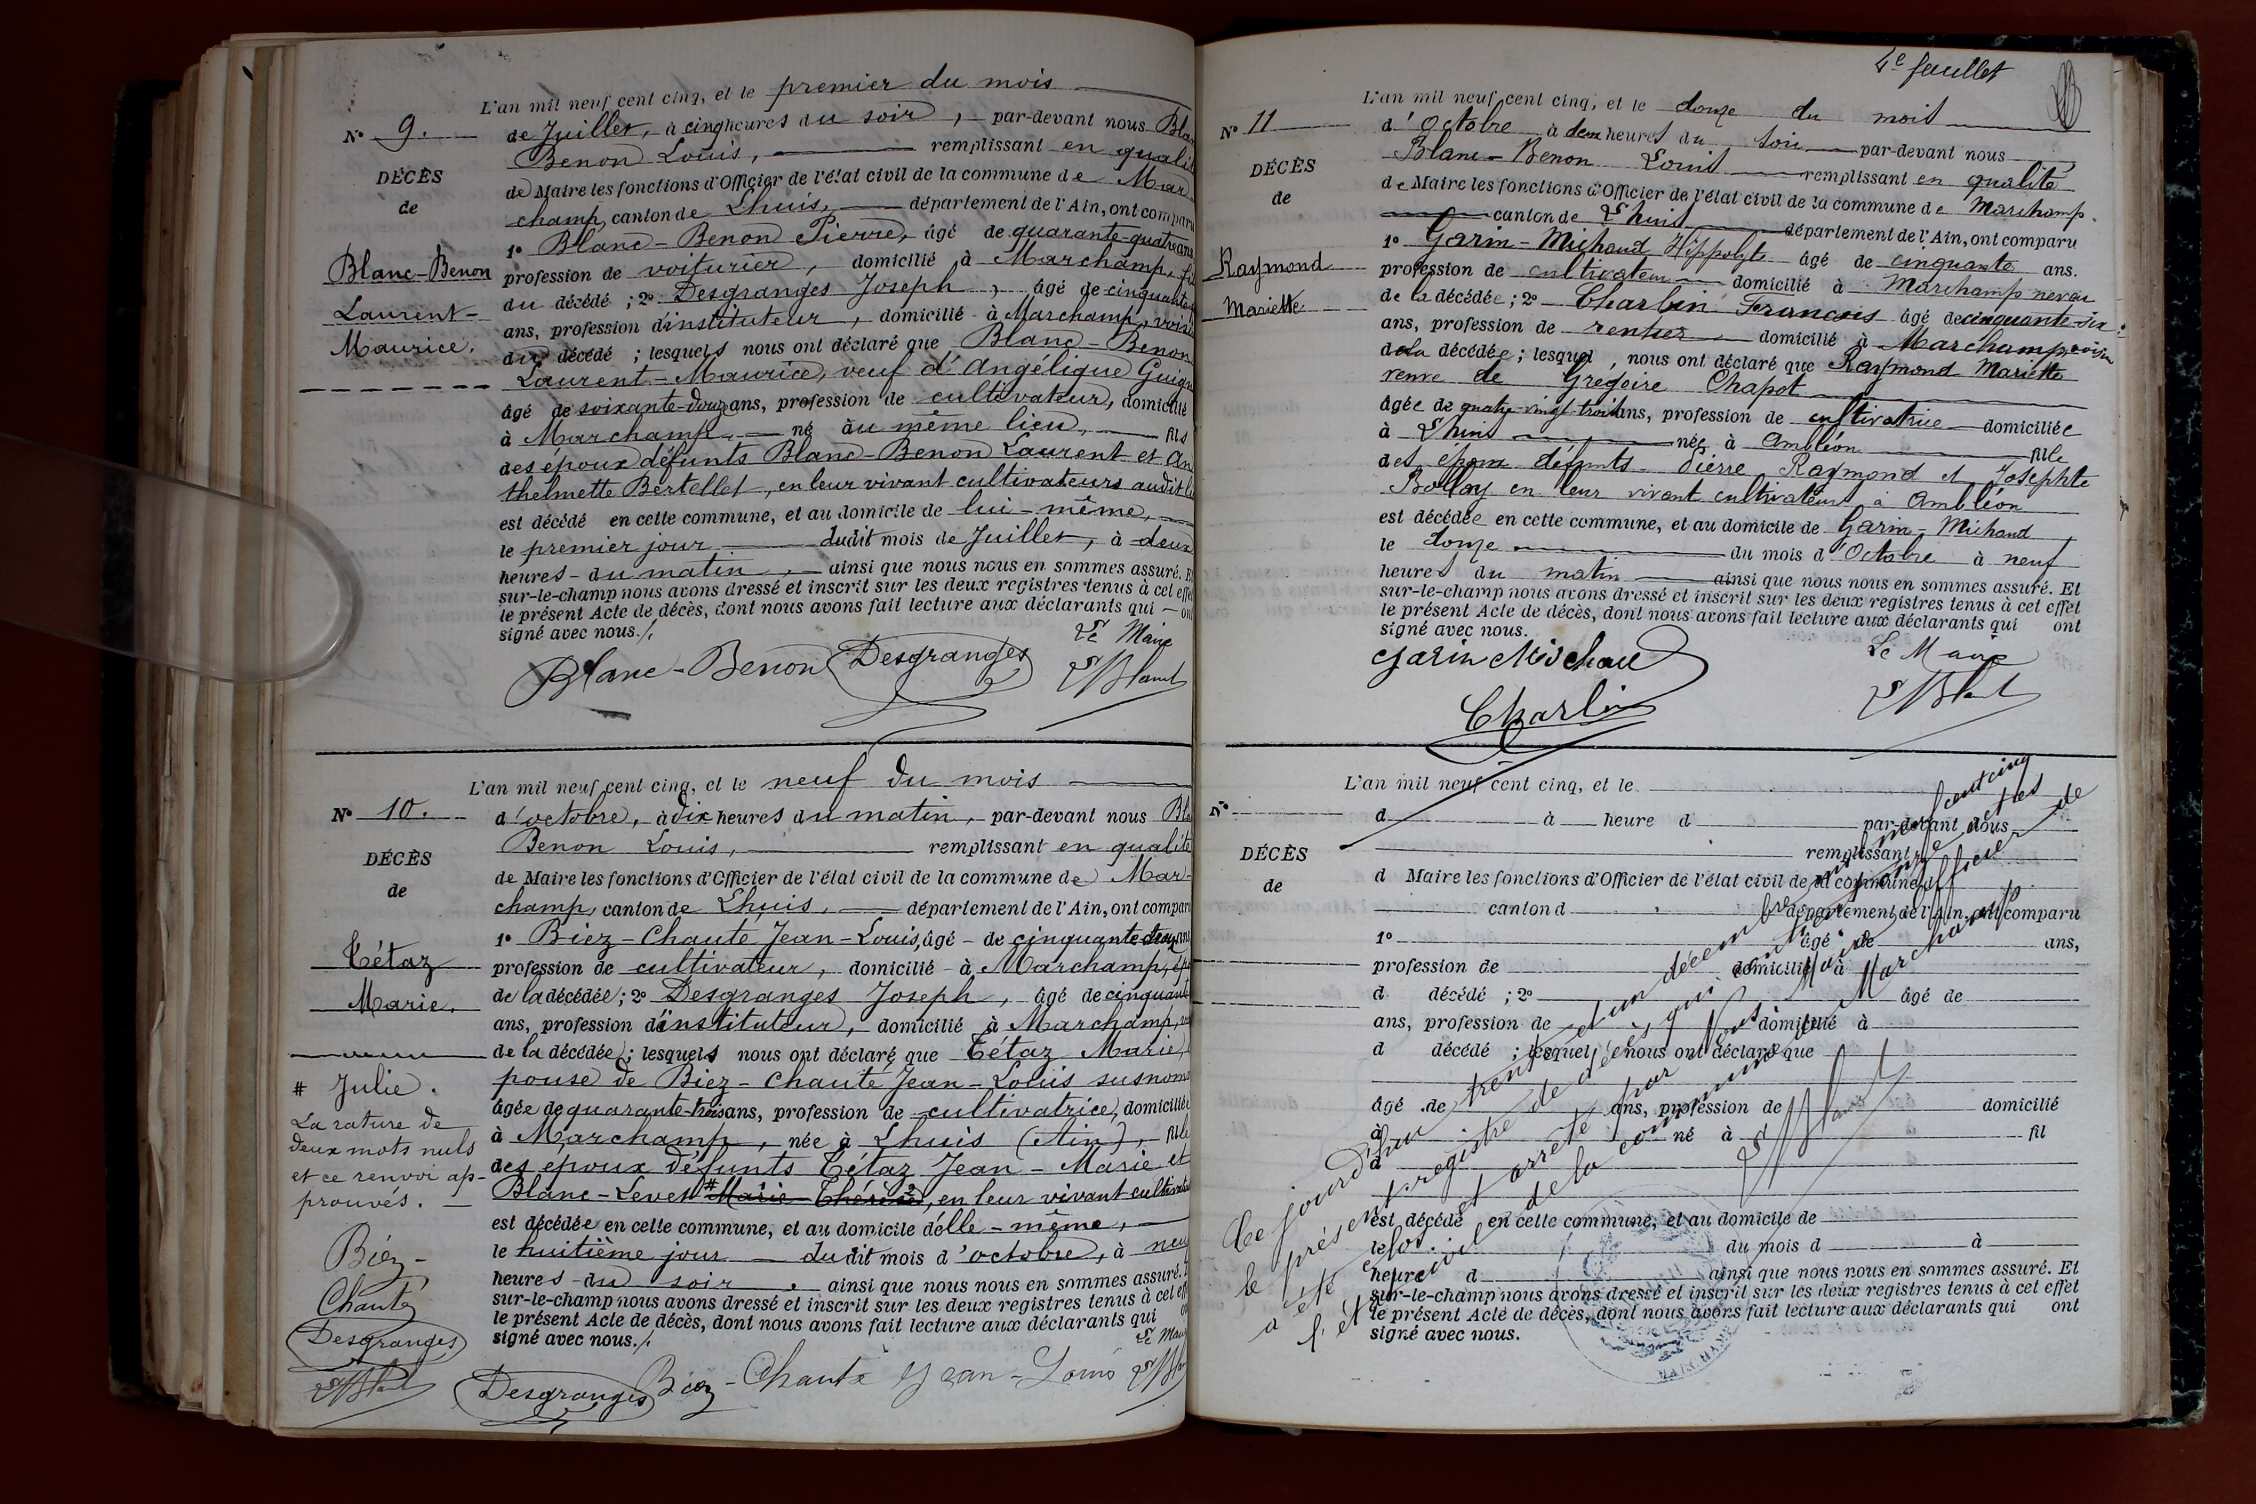 L'an mil neuf cent cinq, et le premier du mois
N° 9.
de Juillet, à cinq heures du soir, par-devant nous Bla
Benon Louis, remplissant en qualité
DÉCÈS
de Maire les fonctions d'Officier de l'état civil de la commune de Mar
de
champ, canton de Lhuis, département de l'Ain, ont comparu
1° Blanc-Benon Pierre, âgé de quarante-quatre ans
Blanc-Benon
profession de voiturier, domicilié à Marchamp, fils
du décédé ; 2° Desgranges Joseph, âgé de cinquante
Laurent-
ans, profession d'instituteur, domicilié à Marchamp, voisin
Maurice.
du décédé ; lesquels nous ont déclaré que Blanc-Benon
Laurent-Maurice, veuf d'Angélique Guigu
âgé de soixante-douze ans, profession de cultivateur, domicilié
à Marchamp, né au même lieu, fils
des époux défunts Blanc-Benon Laurent et An
thelmette Bertellet, en leur vivant cultivateurs audit li
est décédé en cette commune, et au domicile de lui-même,
le premier jour dudit mois de Juillet, à deux
heures du matin, ainsi que nous nous en sommes assuré. Et
sur-le-champ nous avons dressé et inscrit sur les deux registres tenus à cet effet
le présent Acte de décès, dont nous avons fait lecture aux déclarants qui ont
signé avec nous./.
Le Maire
Blanc-Benon Desgranges LBlanc
L'an mil neuf cent cinq, et le neuf du mois
N° 10.
d'octobre, à dix heures du matin, par-devant nous Bla
Benon Louis, remplissant en qualité
DÉCÈS
de Maire les fonctions d'Officier de l'état civil de la commune de Mar-
de
champ, canton de Lhuis, département de l'Ain, ont comparu
1° Biez-Chauté Jean-Louis, âgé de cinquante ans
Tétaz
profession de cultivateur, domicilié à Marchamp, épo
Marie.
de la décédée ; 2° Desgranges Joseph, âgé de cinquante
ans, profession d'instituteur, domicilié à Marchamp,
de la décédée ; lesquels nous ont déclaré que Tétaz Marie,
pouse de Biez-Chauté Jean-Louis susnommé
âgée de quarante-trois ans, profession de cultivatrice, domiciliée
à Marchamp, née à Lhuis (Ain), fille
des époux défunts Tétaz Jean-Marie et
Blanc-Levet # Marie Thérèse, en leur vivant cultivateurs
est décédée en cette commune, et au domicile d'elle-même,
le huitième jour dudit mois d'octobre, à neuf
heures du soir, ainsi que nous nous en sommes assuré.
sur-le-champ nous avons dressé et inscrit sur les deux registres tenus à cet eff
le présent Acte de décès, dont nous avons fait lecture aux déclarants qui
signé avec nous./.
Le Maire
# Julie.
La rature de
deux mots nuls
et ce renvoi ap-
prouvés.
Biez-
Chauté
Desgranges
LBlanc
Desgranges Biez-Chauté Jean-Louis LBlanc
4e feuillet
L'an mil neuf cent cinq, et le douze du mois
N° 11
d'Octobre à deux heures du soir par-devant nous
Blanc-Benon Louis remplissant en qualité
DÉCÈS
de Maire les fonctions d'Officier de l'état civil de la commune de Marchamp.
de
canton de Lhuis département de l'Ain, ont comparu
1° Garin-Michaud Hippolyte âgé de cinquante ans.
Raymond
profession de cultivateur domicilié à Marchamp neveu
Mariette
de la décédée ; 2° Charlin François âgé de cinquante-six
ans, profession de rentier domicilié à Marchamp voisin
de la décédée ; lesquel, nous ont déclaré que Raymond Mariette
veuve de Grégoire Chapot
âgée de quatre-vingt-trois ans, profession de cultivatrice domiciliée
à Lhuis née à Ambléon fille
des époux défunts Pierre Raymond et Josephte
Bollay en leur vivant cultivateurs à Ambléon
est décédée en cette commune, et au domicile de Garin-Michaud
le douze du mois d'Octobre à neuf
heures du matin ainsi que nous nous en sommes assuré. Et
sur-le-champ nous avons dressé et inscrit sur les deux registres tenus à cet effet
le présent Acte de décès, dont nous avons fait lecture aux déclarants qui ont
signé avec nous.
Garin Michaud
Le Maire
Charlin
LBlanc
L'an mil neuf cent cinq, et le
N°
d à heure d par-devant nous
remplissant
DÉCÈS
d Maire les fonctions d'Officier de l'état civil de la commune d
de
canton d département de l'Ain, ont comparu
1° âgé de ans,
profession de domicilié à
d décédé ; 2° âgé de
ans, profession de domicilié à
d décédé ; lesquel nous ont déclaré que
âgé de ans, profession de domicilié
à né à fil
d
est décédé en cette commune, et au domicile de
le du mois d à
heure d ainsi que nous nous en sommes assuré. Et
sur-le-champ nous avons dressé et inscrit sur les deux registres tenus à cet effet
le présent Acte de décès, dont nous avons fait lecture aux déclarants qui ont
signé avec nous.
Ce jourd'hui trente et un décembre mil neuf cent cinq
le présent registre de décès, qui contient onze actes
a été clos et arrêté par Nous Maire, officier de
l'état civil de la commune de Marchamp.
LBlanc